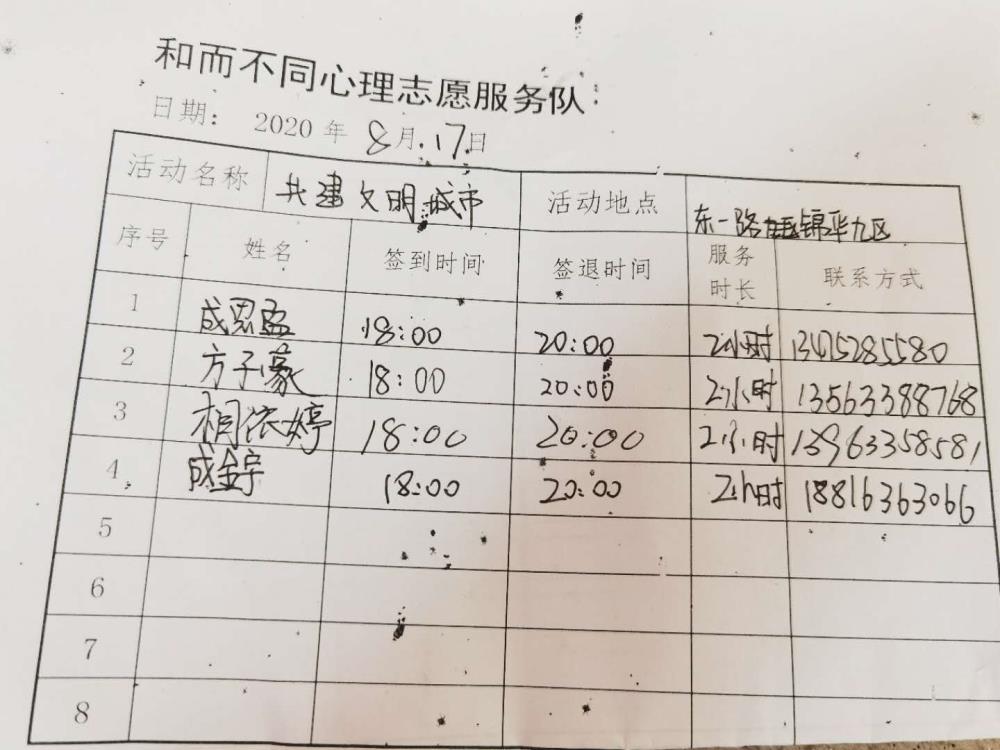 和而不同心理志愿服务队
日期： 2020 年 8 月 17 日
活动名称 共建文明城市 活动地点 东一路 锦华九区
序号 姓名 签到时间 签退时间 服务时长 联系方式
1 成思孟 18:00 20:00 2小时 13415285580
2 方子豪 18:00 20:00 2小时 13563388768
3 相依婷 18:00 20:00 2小时 13963358581
4 成金宇 18:00 20:00 2小时 18816363066
5
6
7
8